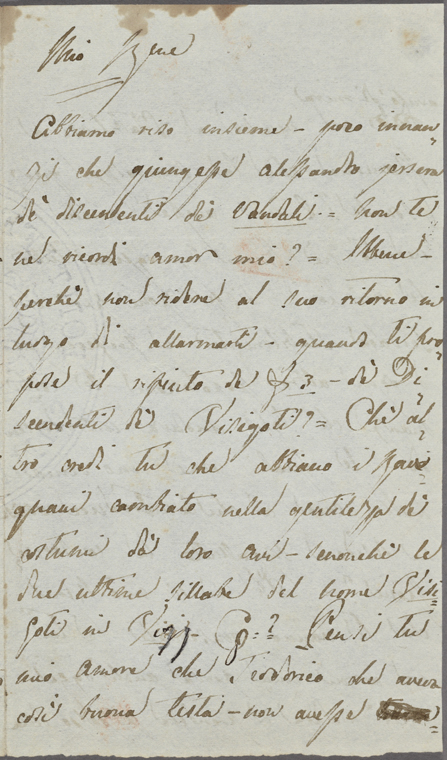 Mio Bene
Abbiamo riso insieme - poco innan=
zi che giungesse Alessandro jersera
de' discendenti de' Vandali = non te
nel ricordi amor mio? = Ebbene -
perchè non ridere al suo ritorno in
luogo di allarmarti - quando ti pro=
pose il rifiuto de' 3 - de' Di=
scendenti de' Visigoti? = Che al=
tro credi tu che abbiano i
cambiato nella gentilezza de'
costumi de' loro avi - senonchè le
due ultime sillabe del nome Visi=
goti in - ? Pensi tu
mio amore che Teodorico che aveva
così buona testa - non avesse